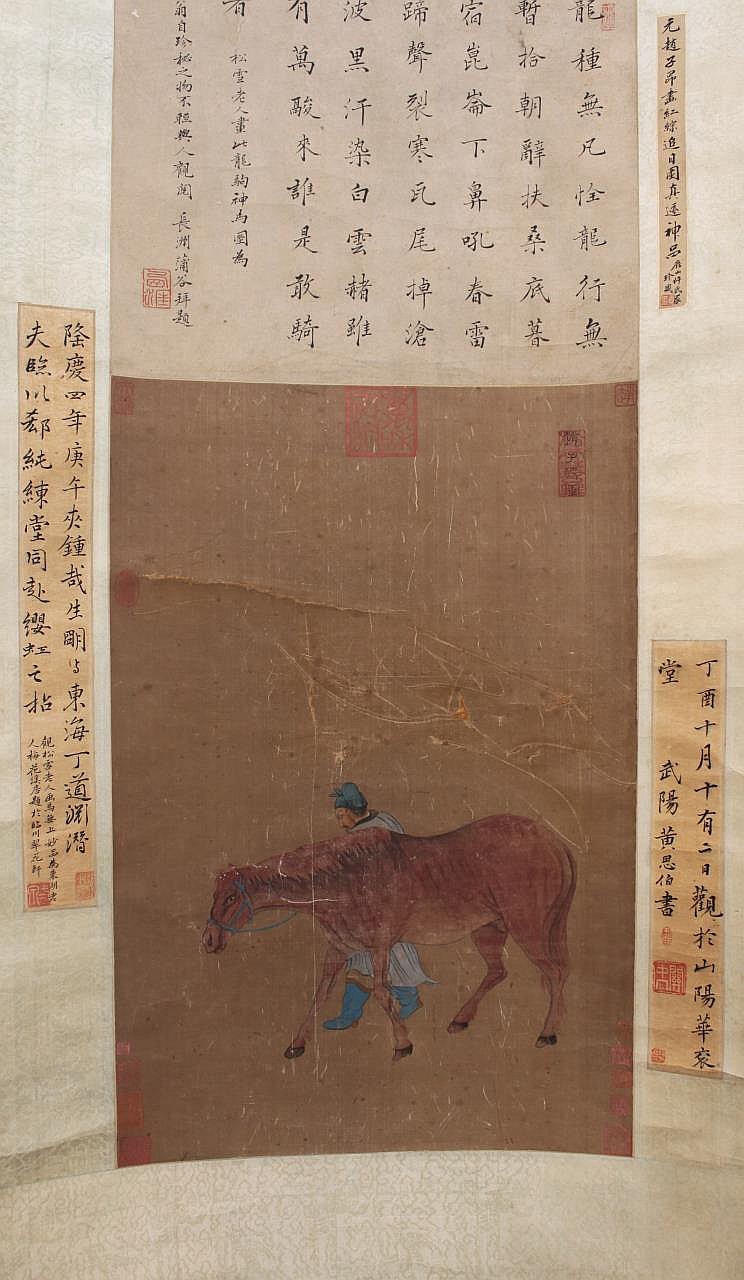 元趙子昂畫紅綜追日圖真迹神品
龍種無凡恠龍行無
暫拾朝辭扶桑底暮
宿崑崙下鼻吼春雷
蹄聲裂寒瓦尾掉滄
波黑汗染白雲赭雖
有萬駿來誰是敢騎
者 松雪老人畫此龍駒神馬圖為
翁自珍秘之物不輕與人觀閱 長洲蒲谷拜題
丁酉十月十有二日觀於山陽華袞
堂 武陽黃思伯書
隆慶四年庚午夾鍾哉生明与東海丁道淵潛
夫臨川鄒純練堂同赴纓虹亡拈
觀松雪老人画馬無上妙品為東朔老
人梅花溪居題於臨川翠花軒